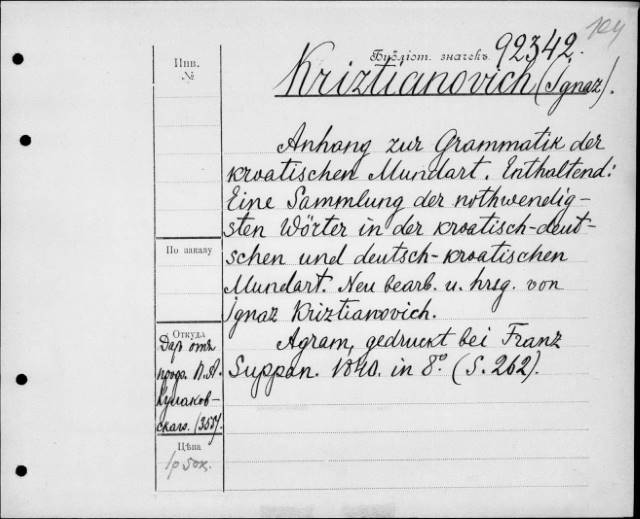 Инв.
№
Библіот. значекъ 92342.
Kriztianovich (Ignaz).
Anhang zur Grammatik der
kroatischen Mundart. Enthaltend:
Eine Sammlung der nothwendig-
sten Wörter in der kroatisch-deut-
schen und deutsch-kroatischen
Mundart. Neu bearb. u. hrsg. von
Ignaz Kriztianovich.
Agram, gedruckt bei Franz
Suppan. 1840. in 8º. (S. 262).
По заказу
Откуда
Даръ отъ
проф. П.А.
Кулаков-
скаго.
Цѣна
1р 50к.